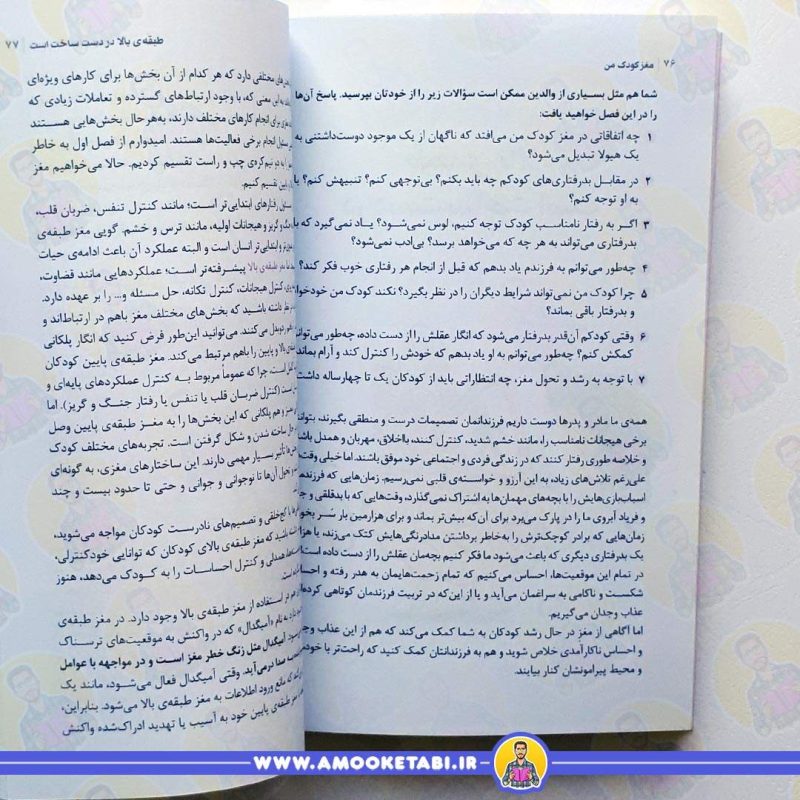 ۷۶ | مغز کودک من
شما هم مثل بسیاری از والدین ممکن است سؤالات زیر را از خودتان بپرسید. پاسخ آن‌ها
را در این فصل خواهید یافت:
۱ چه اتفاقاتی در مغز کودک من می‌افتد که ناگهان از یک موجود دوست‌داشتنی به
یک هیولا تبدیل می‌شود؟
۲ در مقابل بدرفتاری‌های کودکم چه باید بکنم؟ بی‌توجهی کنم؟ تنبیهش کنم؟ یا
به او توجه کنم؟
۳ اگر به رفتار نامناسب کودک توجه کنیم، لوس نمی‌شود؟ یاد نمی‌گیرد که با
بدرفتاری می‌تواند به هر چه که می‌خواهد برسد؟ بی‌ادب نمی‌شود؟
۴ چه‌طور می‌توانم به فرزندم یاد بدهم که قبل از انجام هر رفتاری خوب فکر کند؟
۵ چرا کودک من نمی‌تواند شرایط دیگران را در نظر بگیرد؟ نکند کودک من خودخواه
و بدرفتار باقی بماند؟
۶ وقتی کودکم آن‌قدر بدرفتار می‌شود که انگار عقلش را از دست داده، چه‌طور می‌توانم
کمکش کنم؟ چه‌طور می‌توانم به او یاد بدهم که خودش را کنترل کند و آرام بماند
۷ با توجه به رشد و تحول مغز، چه انتظاراتی باید از کودکان یک تا چهارساله داشت
همه‌ی ما مادر و پدرها دوست داریم فرزندانمان تصمیمات درست و منطقی بگیرند، بتوانند
برخی هیجانات نامناسب را، مانند خشم شدید، کنترل کنند، بااخلاق، مهربان و همدل باشند
و خلاصه طوری رفتار کنند که در زندگی فردی و اجتماعی خود موفق باشند. اما خیلی وقت
علی‌رغم تلاش‌های زیاد، به این آرزو و خواسته‌ی قلبی نمی‌رسیم. زمان‌هایی که فرزندم
اسباب‌بازی‌هایش را با بچه‌های مهمان‌ها به اشتراک نمی‌گذارد، وقت‌هایی که با بدقلقی و
و فریاد آبروی ما را در پارک می‌برد برای آن‌که بیش‌تر بماند و برای هزارمین بار سُر بخورد
زمان‌هایی که برادر کوچک‌ترش را به‌خاطر برداشتن مدادرنگی‌هایش کتک می‌زند، یا هزار
یک بدرفتاری دیگری که باعث می‌شود ما فکر کنیم بچه‌مان عقلش را از دست داده است
در تمام این موقعیت‌ها، احساس می‌کنیم که تمام زحمت‌هایمان به هدر رفته و احساس
شکست و ناکامی به سراغمان می‌آید و یا از این‌که در تربیت فرزندمان کوتاهی کرده‌ایم
عذاب وجدان می‌گیریم.
اما آگاهی از مغز در حال رشد کودکان به شما کمک می‌کند که هم از این عذاب
و احساس ناکارآمدی خلاص شوید و هم به فرزندانتان کمک کنید که راحت‌تر با خودشان
و محیط پیرامونشان کنار بیایند.
طبقه‌ی بالا در دست ساخت است | ۷۷
مختلفی دارد که هر کدام از آن بخش‌ها برای کارهای ویژه‌ای
این معنی که، با وجود ارتباط‌های گسترده و تعاملات زیادی که
برای انجام کارهای مختلف دارند، به‌هرحال بخش‌هایی هستند
انجام برخی فعالیت‌ها هستند. امیدوارم از فصل اول به خاطر
نیم‌کره‌ی چپ و راست تقسیم کردیم. حالا می‌خواهیم مغز
تقسیم کنیم.
رفتارهای ابتدایی‌تر است؛ مانند کنترل تنفس، ضربان قلب،
و گریز و هیجانات اولیه، مانند ترس و خشم. گویی مغز طبقه‌ی
و ابتدایی‌تر انسان است و البته عملکرد آن باعث ادامه‌ی حیات
مغز طبقه‌ی بالا پیشرفته‌تر است؛ عملکردهایی مانند قضاوت،
کنترل هیجانات، کنترل تکانه، حل مسئله و... را بر عهده دارد.
نظر داشته باشید که بخش‌های مختلف مغز باهم در ارتباط‌اند و
می‌کنند. می‌توانید این‌طور فرض کنید که انگار پلکانی
بالا و پایین را باهم مرتبط می‌کند. مغز طبقه‌ی پایین کودکان
است، چرا که عموماً مربوط به کنترل عملکردهای پایه‌ای و
است (کنترل ضربان قلب یا تنفس یا رفتار جنگ و گریز). اما
و هم پلکانی که این بخش‌ها را به مغز طبقه‌ی پایین وصل
حال ساخته شدن و شکل گرفتن است. تجربه‌های مختلف کودک
تأثیر بسیار مهمی دارند. این ساختارهای مغزی، به گونه‌ای
تحول آن‌ها تا نوجوانی و جوانی و حتی تا حدود بیست و چند
کج‌خلقی و تصمیم‌های نادرست کودکان مواجه می‌شوید،
باشید که مغز طبقه‌ی بالای کودکان که توانایی خودکنترلی،
همدلی و کنترل احساسات را به کودک می‌دهد، هنوز
هم در استفاده از مغز طبقه‌ی بالا وجود دارد. در مغز طبقه‌ی
به نام «آمیگدال» که در واکنش به موقعیت‌های ترسناک
آمیگدال مثل زنگ خطر مغز است و در مواجهه با عوامل
صدا درمی‌آید. وقتی آمیگدال فعال می‌شود، مانند یک
که مانع ورود اطلاعات به مغز طبقه‌ی بالا می‌شود. بنابراین،
طبقه‌ی پایین خود به آسیب یا تهدید ادراک‌شده واکنش
WWW.AMOOKETABI.IR